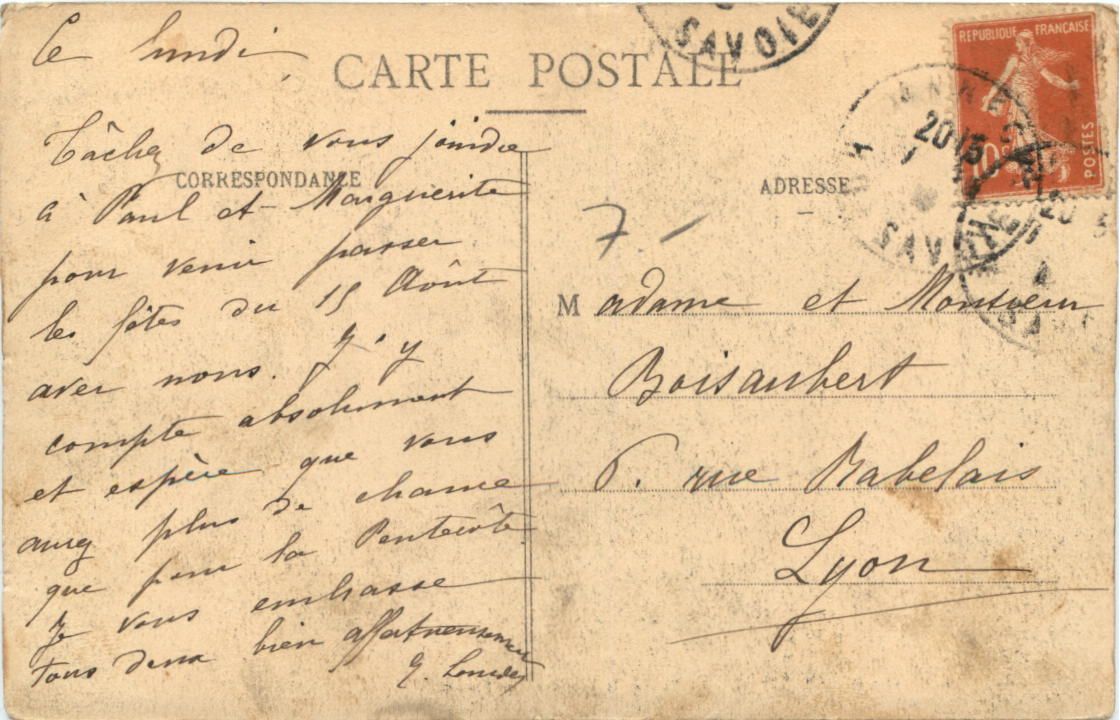 Ce lundi
CARTE POSTALE
Tâchez de vous joindre
CORRESPONDANCE
à Paul et Marguerite
pour venir passer
les fêtes du 15 Août
avec nous. J'y
compte absolument
et espère que vous
aurez plus de chance
que pour la Pentecôte
Je vous embrasse
tous deux bien affectueusement
ADRESSE
7 -
Madame et Monsieur
Boisaubert
6. rue Rabelais
Lyon
REPUBLIQUE FRANÇAISE
10c
POSTES
SAVOIE
ANNECY
20-15
SAVOIE